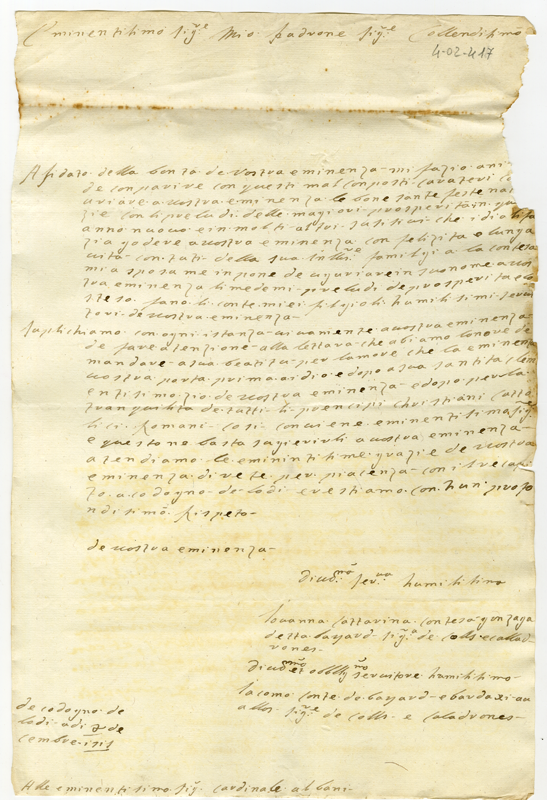 Eminentisimo sig.re Mio padrone sig.re Collendisimo
4-02-417
Afidato della bontà de vostra eminenza mi fazio ani
de conparire con questi mal conposti carateri
uriare a vostra eminenza le bone sante feste na
zie con li preludi delle magiori prosperità in
anno nuovo e in molti altri susitivi che i dia
zia godere a vostra eminenza con felizita e lunga
vità con tuti della sua famiglia la contesa
mia sposa me inpone de uguriare in suo nome a vos
tra eminenza li medemi preludi de prosperita e lo
steso fano li conte miei figlioli humilisimi servi
tori de vostra eminenza
Suplichiamo con ogni istanza a vostra eminenza
de fare atenzione alla lettara che abiamo lonore de
mandare a sua beatitu per lamore che la eminen
vostra porta prima a dio e dopo a sua santita
entisimo zio de vostra eminenza e dopo per la
tranquilità de tutti li prencipi christiani catta
lici Romani cosi conviene eminentisimo sig.re
e questo ne basta sugerirli a vostra eminenza
atendiamo le eminintisime grazie de vostra
eminenza direte per piacenza con il recapi
to a codogno de lodi e restiamo con hun profo
ndisimo Rispeto
de vostra eminenza
humilisima
Iovanna Cattarina Contesa gonzaga
detta bayard sig.a de Colls e callad
rones
servitore humilisimo
Iacomo Conte de bayard e bardaxi
sig.re de Colls e Caladrones
de codogno de
lodi adi de
cembre
Alle eminentisimo sig. Cardinale albani